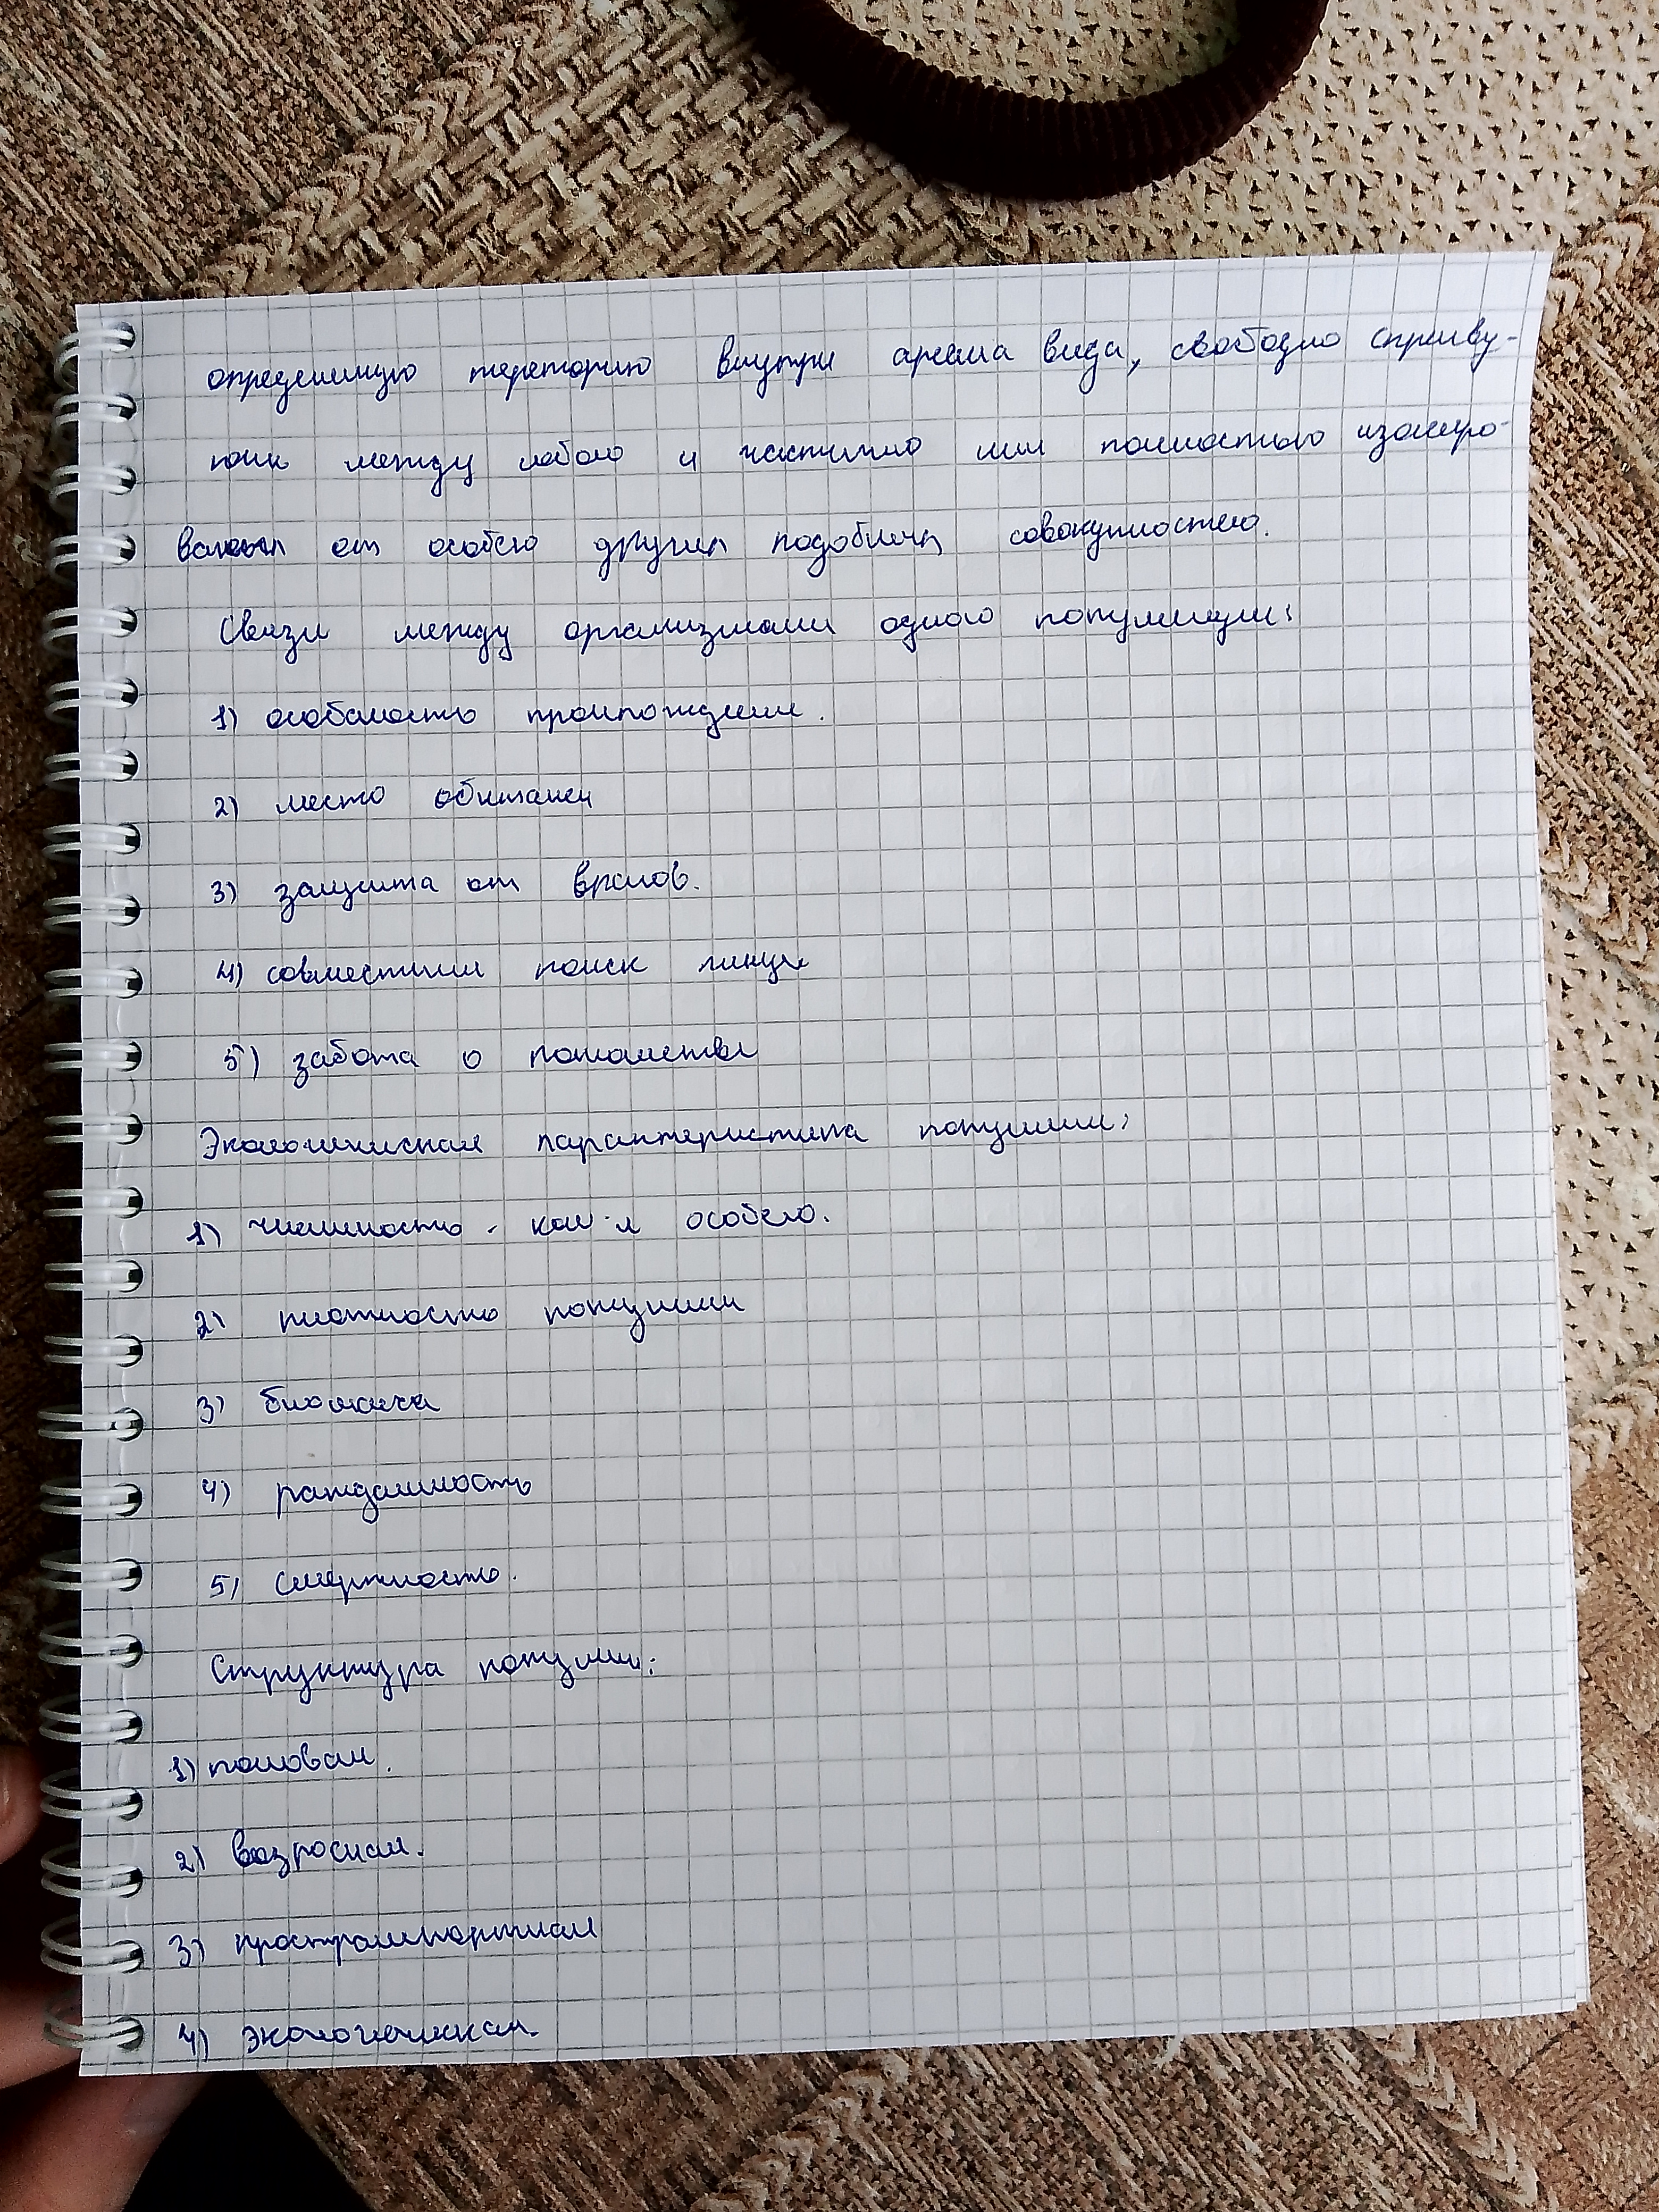 определенную тереторию внутри ареала вида, свободно скрещиву-
между собою и частично или полностью изолиро-
от особей других подобных совокупностей.
Связи между организмами одного популяции:
1) особеность
2) место обитания
3) защита от врагов.
4) совместный поиск пищи
5) забота о потомстве
Экологическая характеристика популяции:
1) численность - кол-л особей.
2) плотность популяции
3) биомасса
4) рождаемость
5) смертность.
Структура популяции:
1) половая.
2) возросная.
3)
4) экологическая.